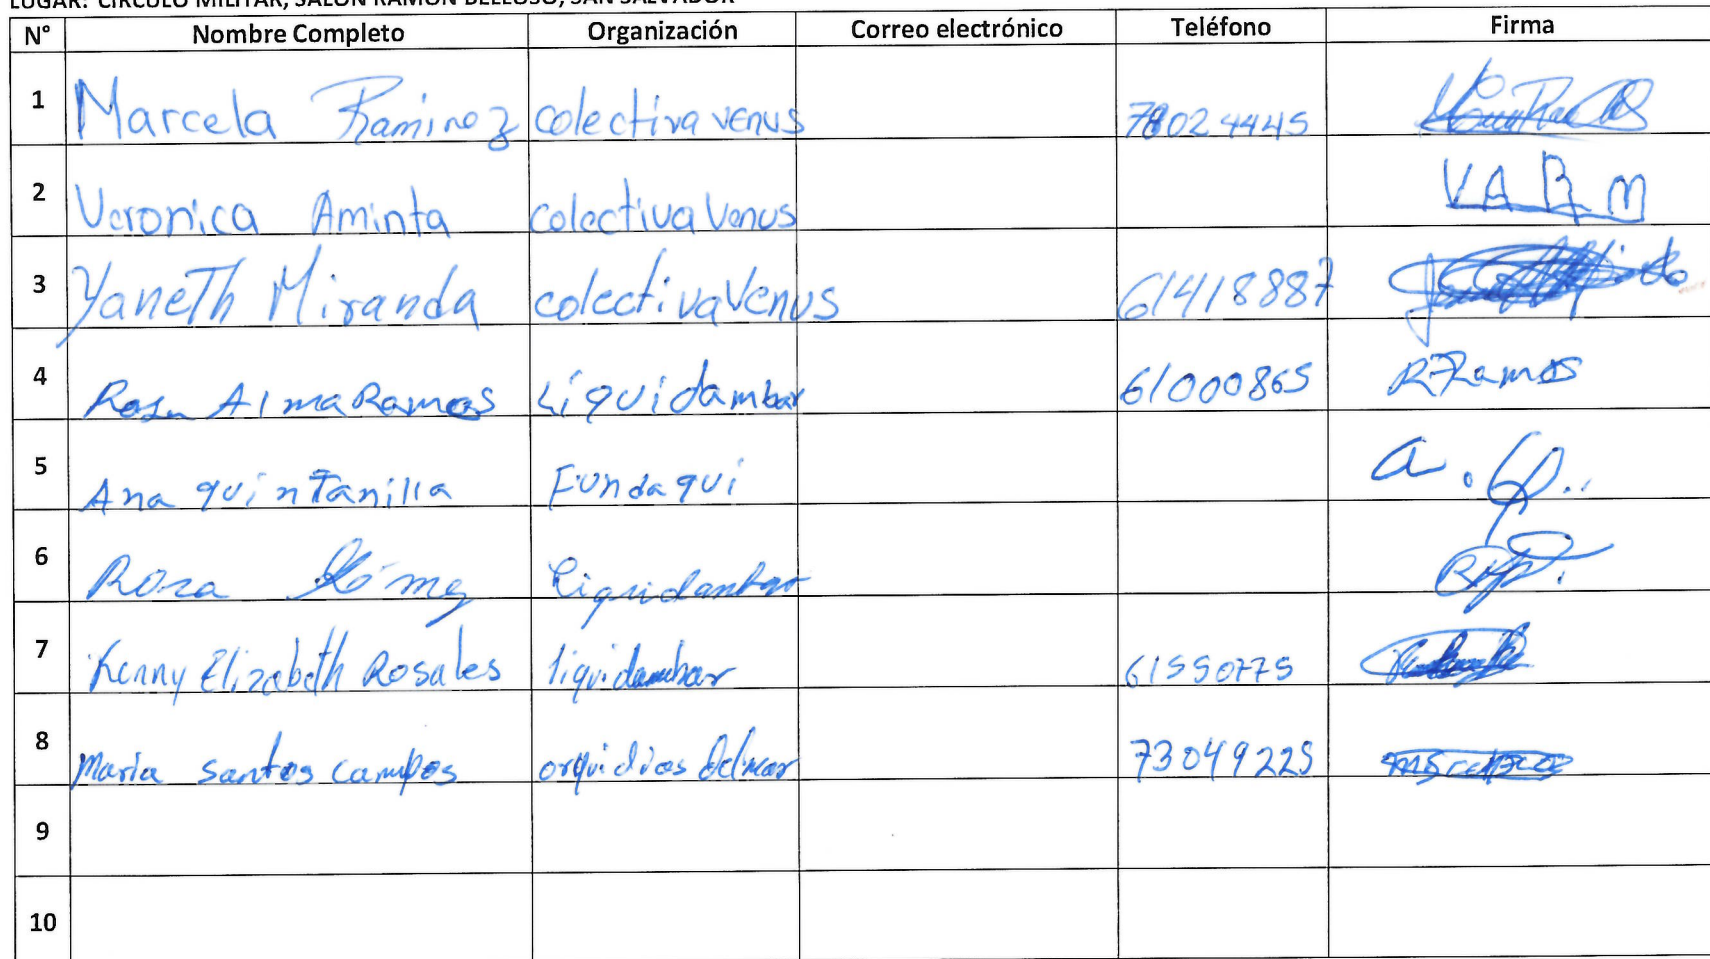 LUGAR: CÍRCULO MILITAR, SALÓN RAMÓN BELLOSO, SAN SALVADOR
N° Nombre Completo Organización Correo electrónico Teléfono Firma
1 Marcela Ramirez colectiva venus 78024445
2 Veronica Aminta colectiva Venus V A R M
3 Yaneth Miranda colectiva Venus 61418887
4 Rosa Alma Ramos Líquidambar 61000865 R Ramos
5 Ana quintanilla Fundaqui
6 Rosa Gómez liquidambar
7 Kenny Elizabeth Rosales liquidambar 61550775
8 Maria santos campos orquidias del mar 73049225
9
10